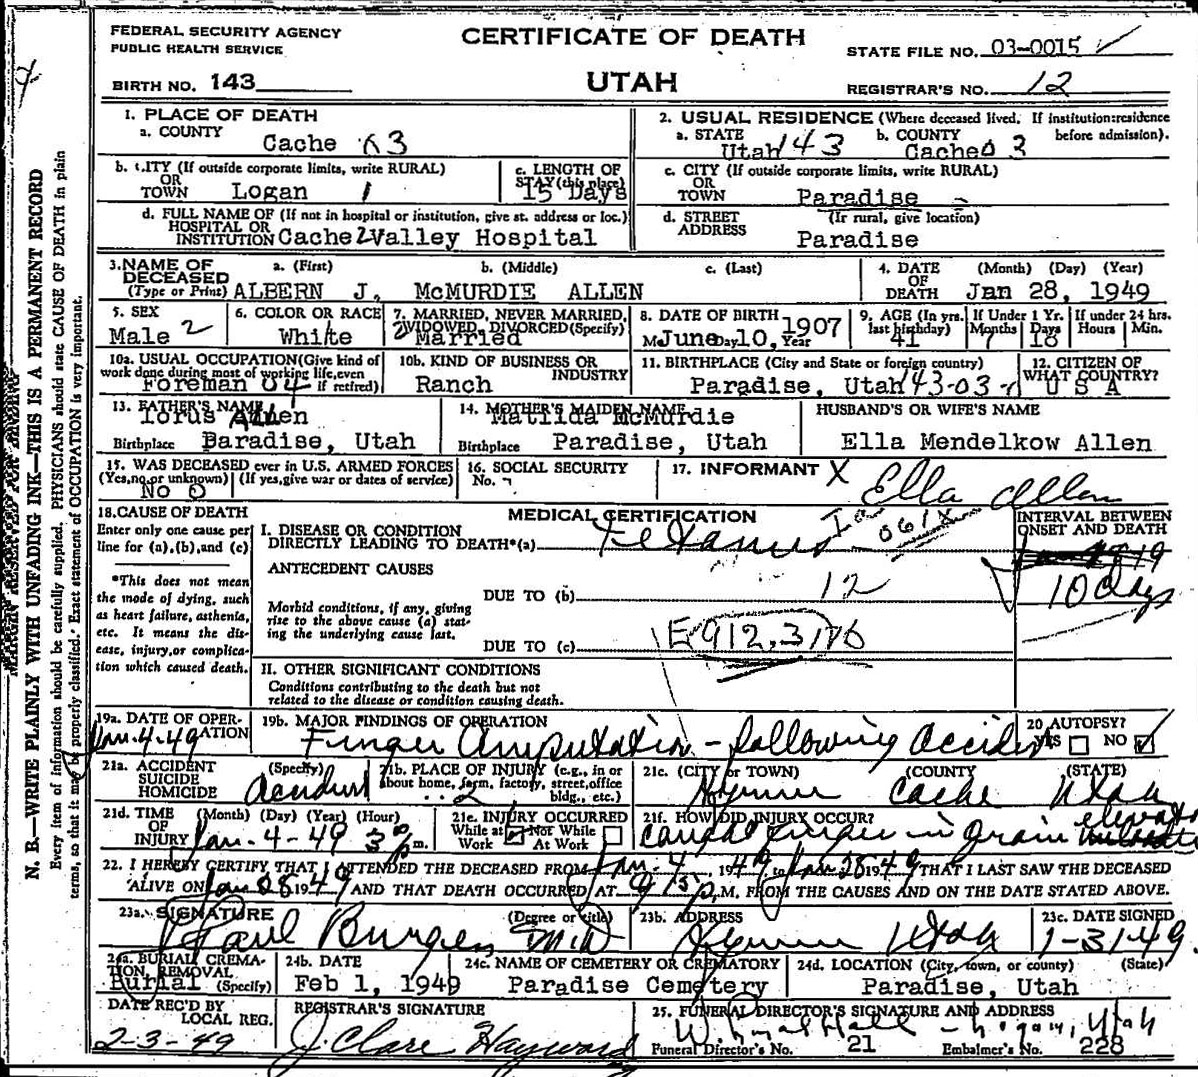 FEDERAL SECURITY AGENCY
PUBLIC HEALTH SERVICE
CERTIFICATE OF DEATH
STATE FILE NO. 03-0015 ✓
BIRTH NO. 143
UTAH
REGISTRAR'S NO. 12
N. B.—WRITE PLAINLY WITH UNFADING INK—THIS IS A PERMANENT RECORD
Every item of information should be carefully supplied. PHYSICIANS should state CAUSE OF DEATH in plain
terms, so that it may be properly classified. Exact statement of OCCUPATION is very important.
MARGIN RESERVED FOR BINDING
1. PLACE OF DEATH
a. COUNTY
Cache 03
2. USUAL RESIDENCE (Where deceased lived. If institution: residence before admission).
a. STATE Utah 143
b. COUNTY Cache 03
b. CITY (If outside corporate limits, write RURAL)
OR TOWN Logan 1
c. LENGTH OF STAY (this place)
15 Days
c. CITY (If outside corporate limits, write RURAL)
OR TOWN Paradise
d. FULL NAME OF (If not in hospital or institution, give st. address or loc.)
HOSPITAL OR INSTITUTION Cache 2 Valley Hospital
d. STREET ADDRESS (If rural, give location)
Paradise
3. NAME OF DECEASED (Type or Print)
a. (First) b. (Middle) c. (Last)
ALBERN J. McMURDIE ALLEN
4. DATE OF DEATH (Month) (Day) (Year)
Jan 28, 1949
5. SEX
Male 2
6. COLOR OR RACE
White
7. MARRIED, NEVER MARRIED, WIDOWED, DIVORCED (Specify)
2 Married
8. DATE OF BIRTH
June 10, 1907
9. AGE (In yrs. last birthday)
41
If Under 1 Yr. Months Days
7 18
If under 24 hrs. Hours Min.
10a. USUAL OCCUPATION (Give kind of work done during most of working life, even if retired)
Foreman 04
10b. KIND OF BUSINESS OR INDUSTRY
Ranch
11. BIRTHPLACE (City and State or foreign country)
Paradise, Utah 143-03-1
12. CITIZEN OF WHAT COUNTRY?
U S A
13. FATHER'S NAME
Iorus Allen
Birthplace Paradise, Utah
14. MOTHER'S MAIDEN NAME
Matilda McMurdie
Birthplace Paradise, Utah
HUSBAND'S OR WIFE'S NAME
Ella Mendelkow Allen
15. WAS DECEASED ever in U.S. ARMED FORCES
(Yes, no, or unknown) (If yes, give war or dates of service)
No 0
16. SOCIAL SECURITY No.
17. INFORMANT X Ella Allen
18. CAUSE OF DEATH
Enter only one cause per
line for (a), (b), and (c)
*This does not mean
the mode of dying, such
as heart failure, asthenia,
etc. It means the dis-
ease, injury, or complica-
tion which caused death.
MEDICAL CERTIFICATION
I. DISEASE OR CONDITION
DIRECTLY LEADING TO DEATH* (a) Tetanus 061X
ANTECEDENT CAUSES
DUE TO (b) 12
Morbid conditions, if any, giving
rise to the above cause (a) stat-
ing the underlying cause last.
DUE TO (c) E 912.3/76
II. OTHER SIGNIFICANT CONDITIONS
Conditions contributing to the death but not
related to the disease or condition causing death.
INTERVAL BETWEEN ONSET AND DEATH
10 days
19a. DATE OF OPERATION
Jan. 4-49
19b. MAJOR FINDINGS OF OPERATION
Finger Amputation - following accident
20 AUTOPSY?
YES NO ✓
21a. ACCIDENT SUICIDE HOMICIDE (Specify)
Accident
21b. PLACE OF INJURY (e.g., in or about home, farm, factory, street, office bldg., etc.)
2
21c. (CITY or TOWN) (COUNTY) (STATE)
Hyrum Cache Utah
21d. TIME OF INJURY (Month) (Day) (Year) (Hour)
Jan. 4-49 3 30 p m.
21e. INJURY OCCURRED
While at Work Not While At Work
21f. HOW DID INJURY OCCUR?
Caught finger in grain elevator
22. I HEREBY CERTIFY THAT I ATTENDED THE DECEASED FROM Jan. 4, 1949 to Jan 28 1949 THAT I LAST SAW THE DECEASED
ALIVE ON Jan 28 1949 AND THAT DEATH OCCURRED AT 9 15 P.M. FROM THE CAUSES AND ON THE DATE STATED ABOVE.
23a. SIGNATURE (Degree or title)
Paul Burgess MD
23b. ADDRESS
Hyrum Utah
23c. DATE SIGNED
1-31-49
24a. BURIAL, CREMATION, REMOVAL (Specify)
Burial
24b. DATE
Feb 1, 1949
24c. NAME OF CEMETERY OR CREMATORY
Paradise Cemetery
24d. LOCATION (City, town, or county) (State)
Paradise, Utah
DATE REC'D BY LOCAL REG.
2-3-49
REGISTRAR'S SIGNATURE
J. Clare Hayward
25. FUNERAL DIRECTOR'S SIGNATURE AND ADDRESS
W. Loyal Hall - Logan, Utah
Funeral Director's No. 21 Embalmer's No. 228